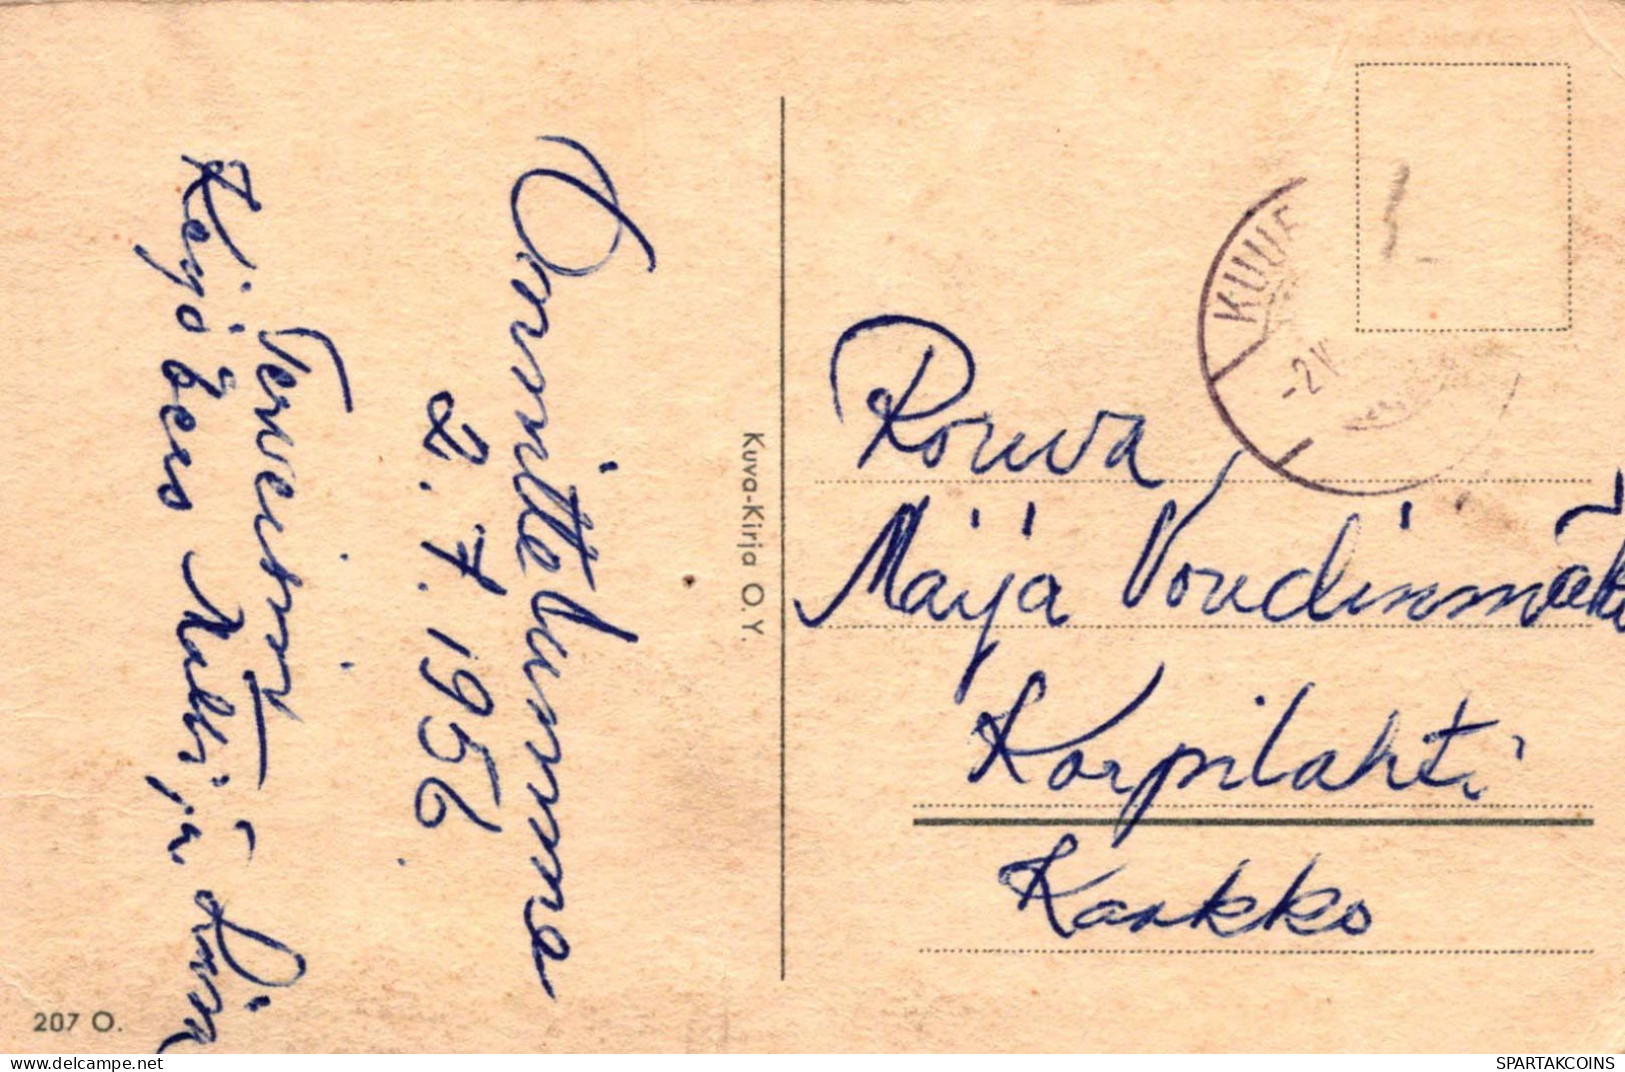 Onnittelumme
2.7.1956.
Terveisiä
Reijo Eeus ja
207 O.
Kuva-Kirja O.Y.
KUUE
-2 V
Rouva
Maija Voudinmäki
Korpilahti
Kaakko
delcampe.net
SPARTAKCOINS